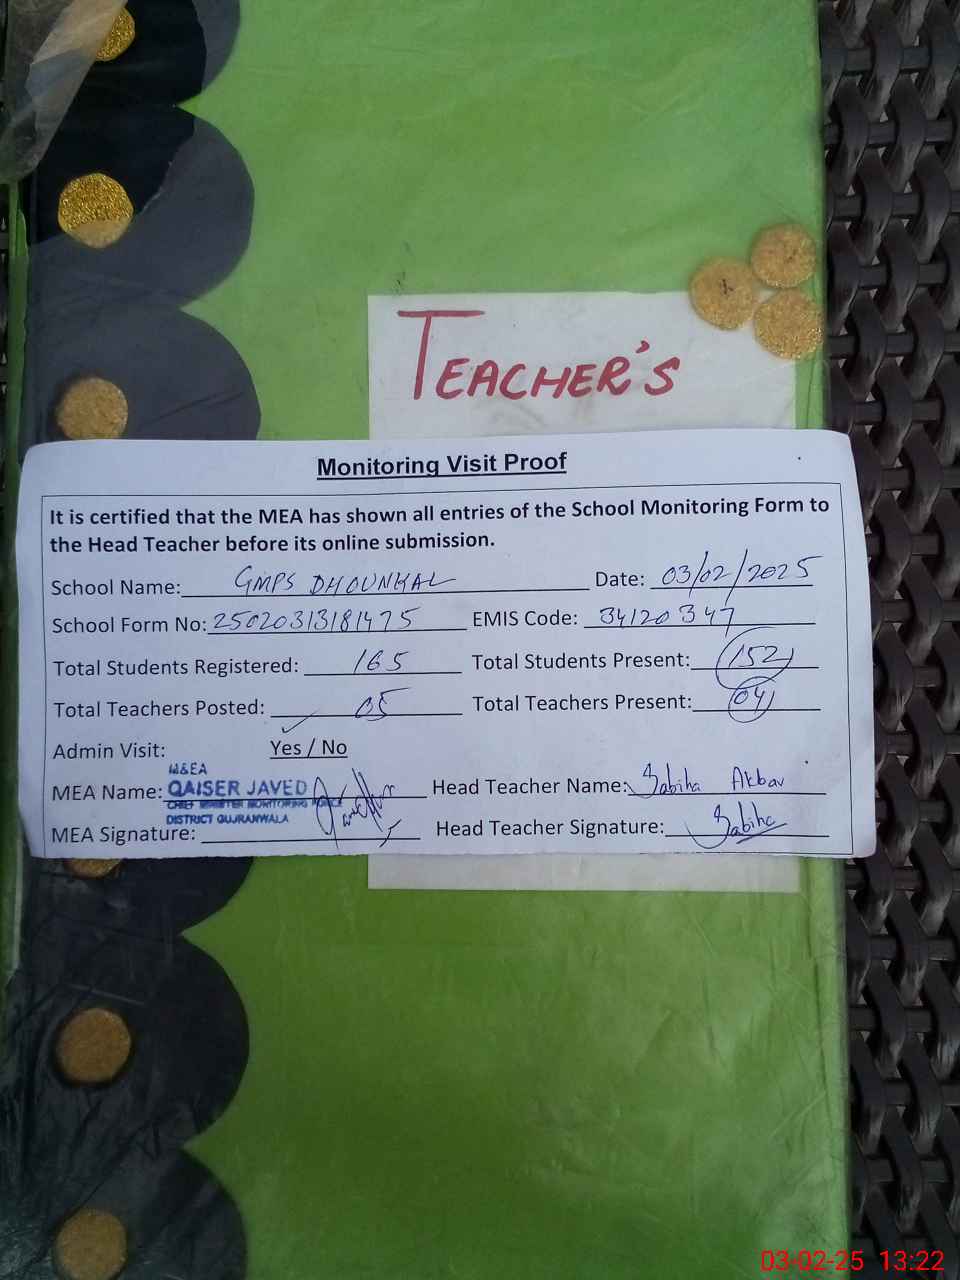 TEACHER'S
Monitoring Visit Proof
It is certified that the MEA has shown all entries of the School Monitoring Form to
the Head Teacher before its online submission.
School Name: GMPS DHOUNKAL Date: 03/02/2025
School Form No: 25020313181475 EMIS Code: 34120347
Total Students Registered: 165 Total Students Present: 152
Total Teachers Posted: 05 Total Teachers Present: 04
Admin Visit: Yes / No
M&EA
MEA Name: QAISER JAVED Head Teacher Name: Sabiha Akbar
CHIEF MINISTER MONITORING FORCE
DISTRICT GUJRANWALA
MEA Signature: Head Teacher Signature: Sabiha
03-02-25 13:22